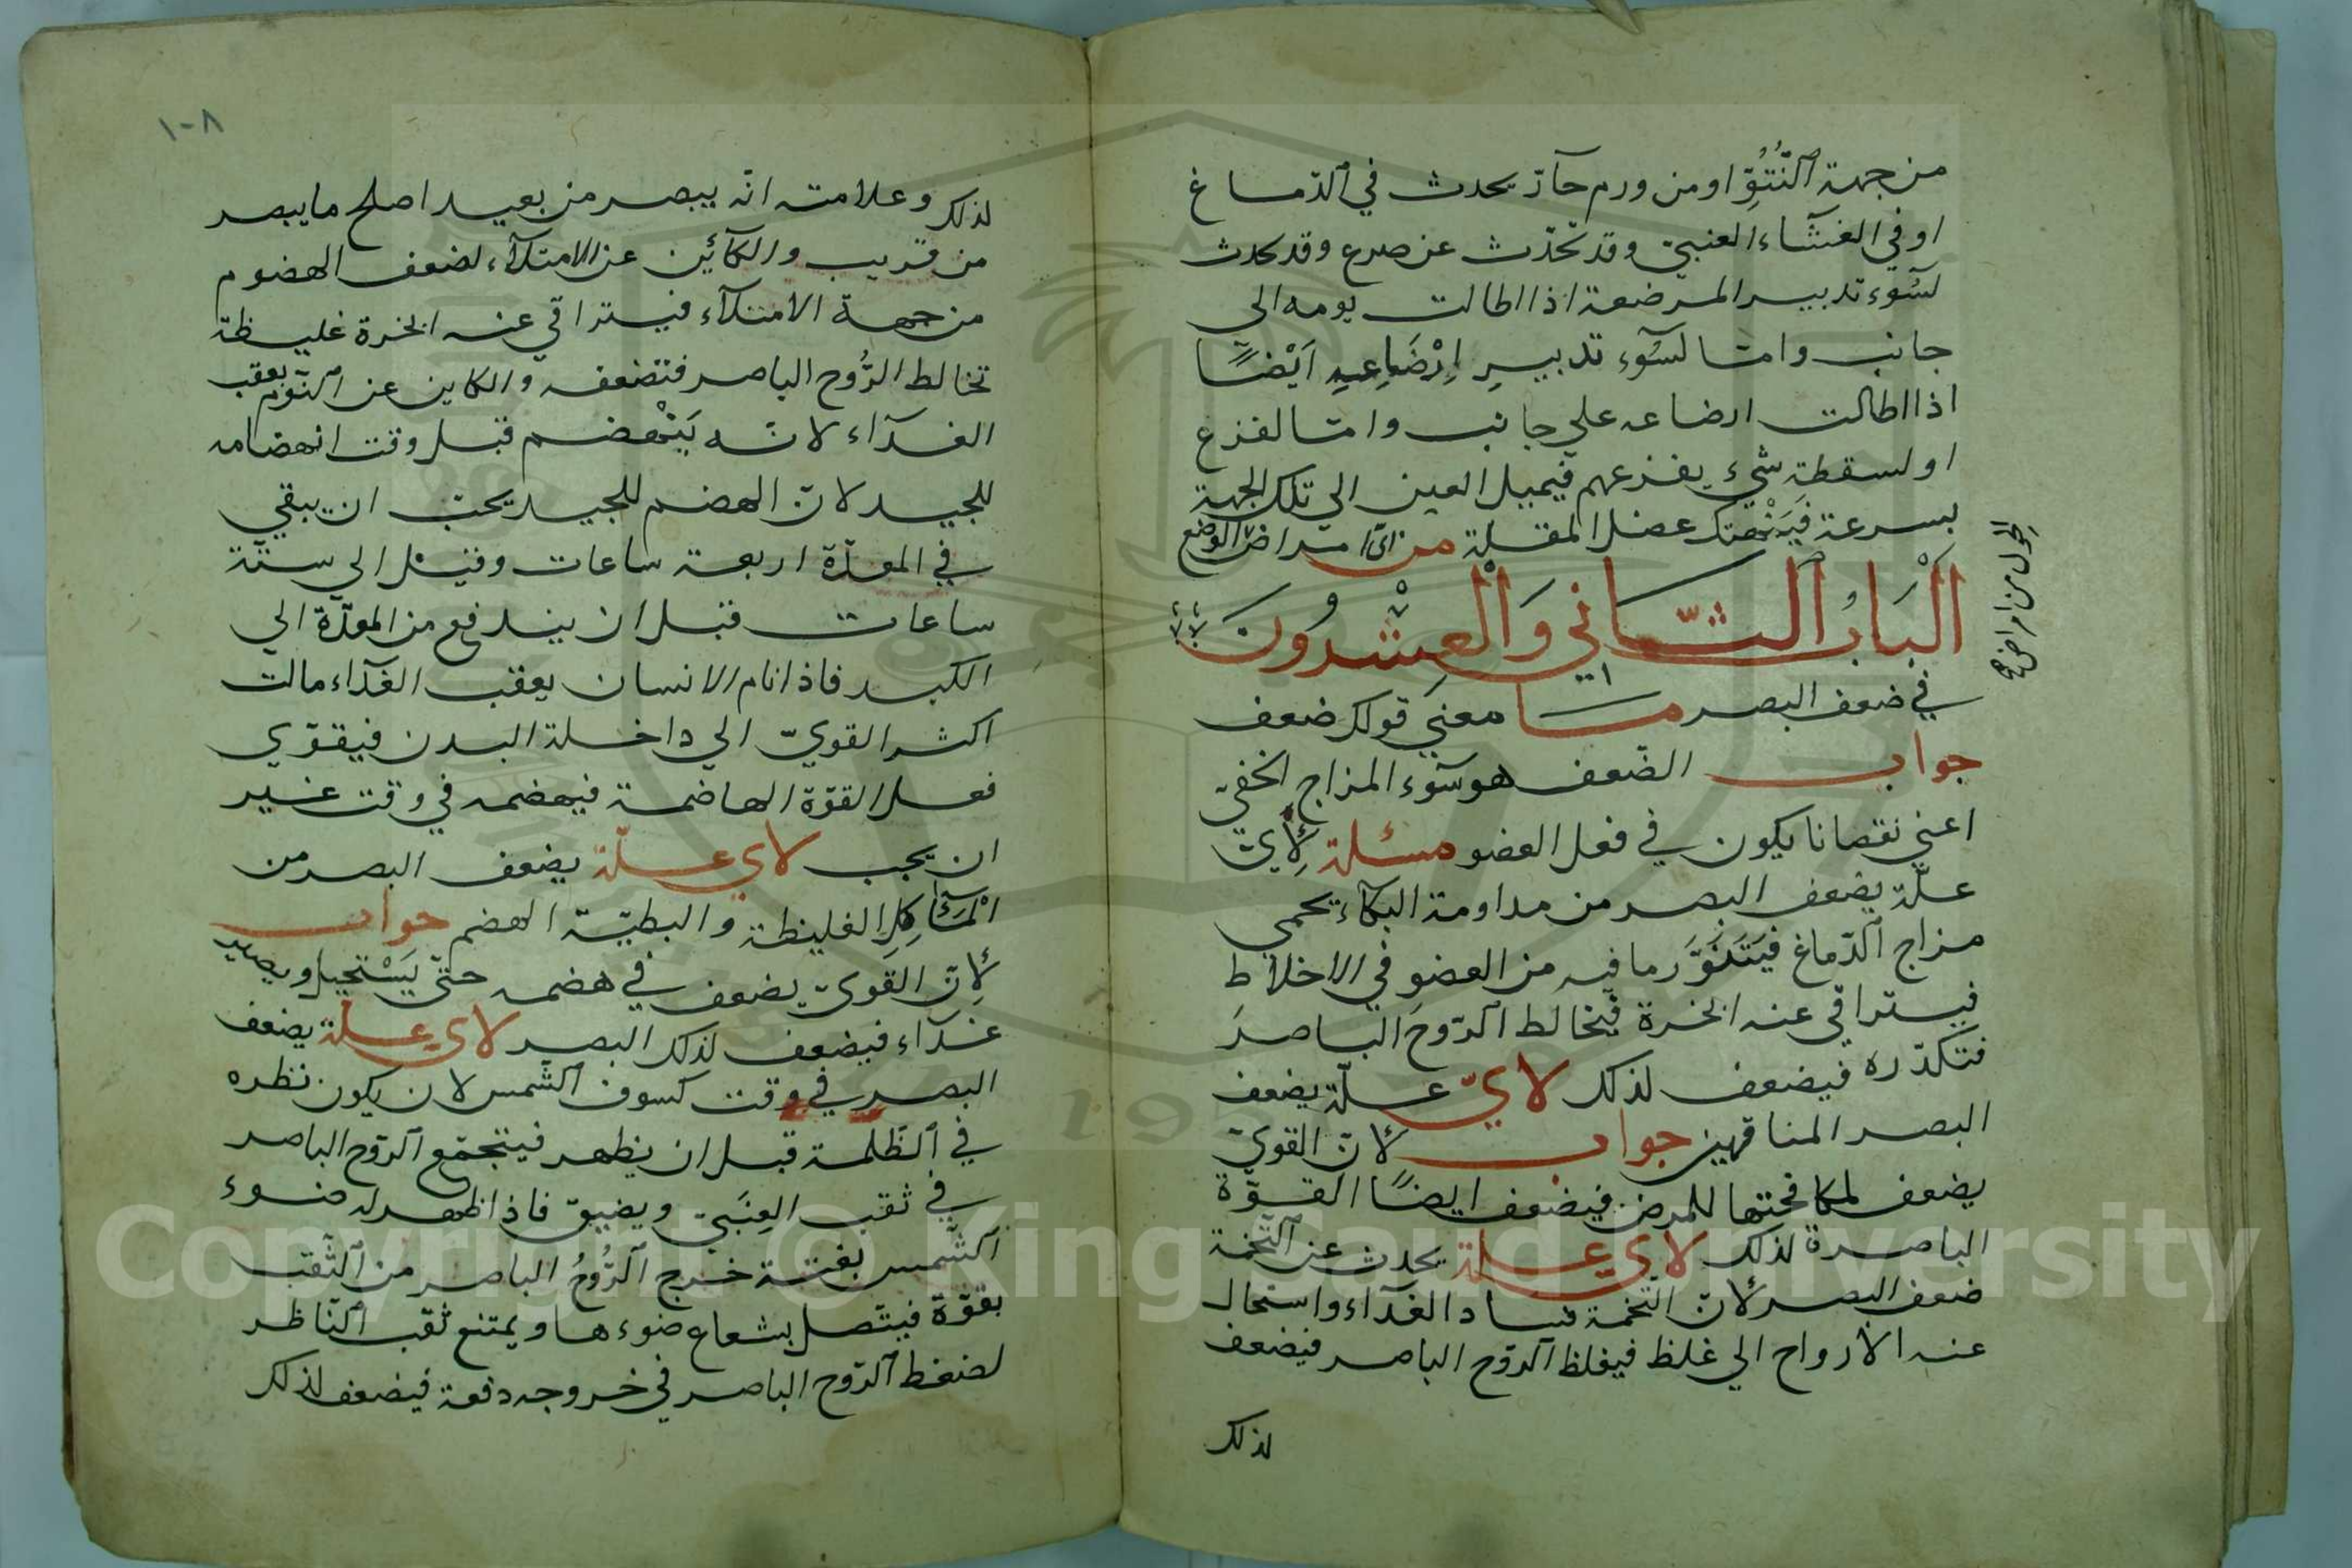 من جهة النُّتُوِّ او من ورم حآرّ يحدث في الدّماغ
او في الغشآء العنبيّ وقد تحّدث عن صرع وقد يحدث
لسُوء تدبير المرضعة اذا اطالت يومه الي
جانب وامّا لسُوء تدبيرِ اِرْضَاعِهِ اَيْضًا
اذا اطالت ارضاعه علي جانب وامّا لفزع
او لسقطة شيء يفزعهم فيميل العين الي تلك الجهة
بسرعة فَيَنْهتك عضل المقلة من ايّ امراض الوضع
الحول من امراض
اَلْبَابُ الثّاني وَالْعِشْرُونَ
في ضعف البصر مسا معني قولك ضعف
جواب الضّعف هو سُوء المزاج الخفيّ
اعني نقصانا يكون في فعل العضو مسئلة لِأَيّ
علّة يضعف البصر من مداومة البكآء يحمي
مزاج الدّماغ فَيَتَنَوَّر ما فيه من العضو في الاخلاط
فيستراقي عنه ابخرة فيخالط الرّوحَ الباصرَ
فتكدّره فيضعف لذلك لايّ علّة يضعف
البصر المناقهين جواب لأنّ القويّ
يضعف لمكافحتها للمرض فيضعف ايضًا القوّة
الباصرة لذلك لاي علة يحدث عن التّخمة
ضعف البصر لأنّ التّخمة فساد الغدآء واستحال
عنه الارواح الي غلظ فيغلظ الرّوح الباصر فيضعف
لذلك
١٠٨
لذلك وعلامته انّه يبصر من بعيد اصلح ما يبصر
من قريب والكآئين عن الامتلآء لضعف الهضوم
من جهة الامتلآء فيستراقي عنه ابخرة غليظة
تخالط الرُّوح الباصر فتضعفه والكاين عن النّوم بعقب
الغدآء لانّه يَنْهضم قبل وقت انهضامه
للجيد لانّ الهضم للجيد يحبّ ان يبقي
في المعدّة اربعة ساعات وقيل الي ستّة
ساعات قبل ان يندفع من المعدّة الي
الكبد فاذا نام الانسان بعقب الغدآء مالت
اكثر القويّ الي داخلة البدن فيقوّي
فعل القوّة الهاضمة فيهضمه في وقت غير
ان يجب لاي علّة يضعف البصر من
الْمَآكِل الغليظة والبطيّة الهضم جواب
لِأنّ القَويّ يضعف في هضمه حتّي يَسْتحيل ويصير
غدآء فيضعف لذلك البصر لاي علّة يضعف
البصر في وقت كسوف الشّمس لان يكون نظره
في الظّلمة قبل ان يظهر فيتجمّع الرّوح الباصر
في ثقب العِنَبيّ ويضيق فاذا ظهر له ضوء
الشّمس بغتة خرج الرُّوحُ الباصر من الثّقب
بقوّة فيتّصل بشعاع ضوءها ويمتنع ثقب النّاظر
لضغط الرّوح الباصر في خروجه دفعة فيضعف لذلك
Copyright © King Saud University